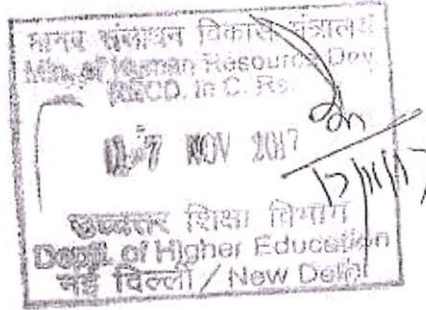 मानव संसाधन विकास मंत्रालय
Min. of Human Resource Dev.
RECD. In C. R.
NOV 2017
17/11/17
उच्चतर शिक्षा विभाग
Deptt. of Higher Education
नई दिल्ली / New Delhi